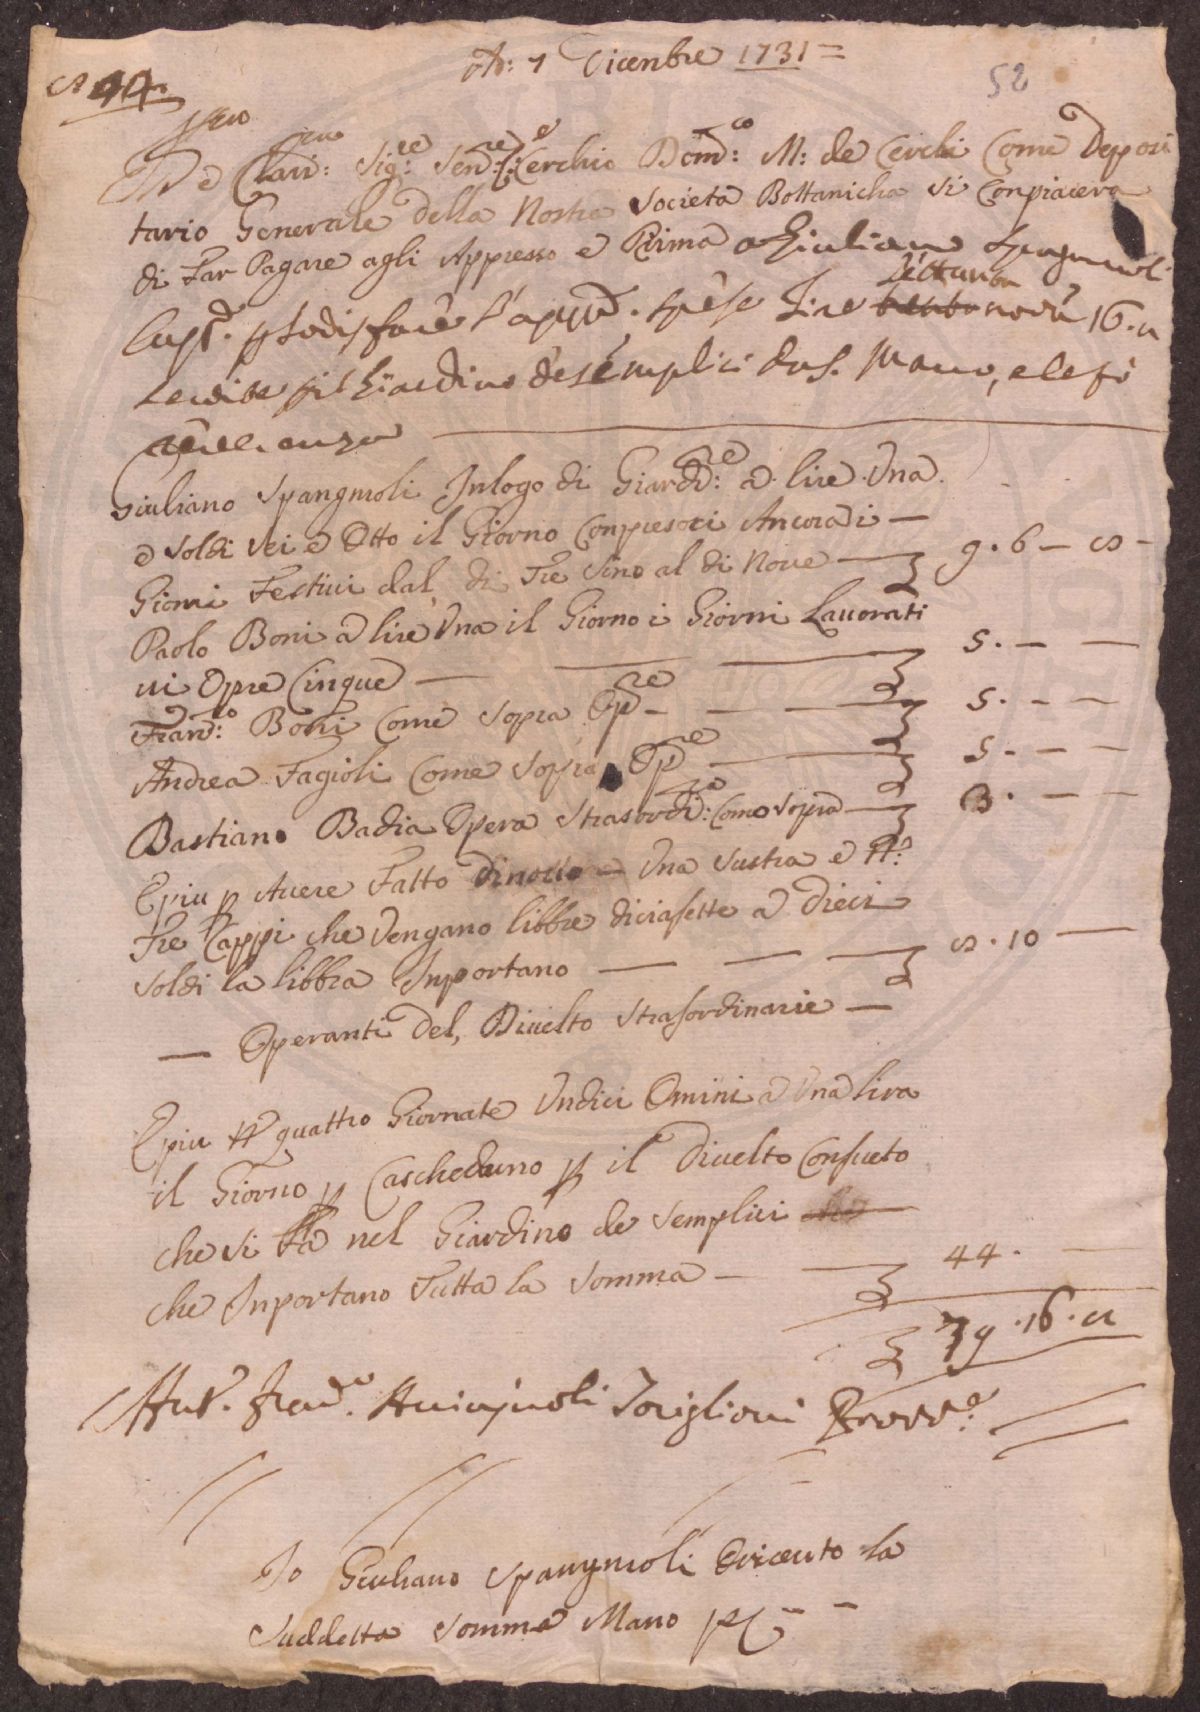 Adì: 7 Dicenbre 1731 =
52
N 44.
Ill.mo
E Clari:mo Sig:re Sen:re C: Cerchio Dom:co M: de Cerchi Come Deposi
tario Generale della Nostra Societa Bottanicha Si Conpiacera
di Far Pagare agli Appresso e Prima a Giuliano Spagnioli
Cust. p Sodisfare l'appo. spese Lire settanta nove 16. n
p il Giardino de semplici da S. Marco, e le fo
Giuliano Spangnioli Inlogo di Giard:re a lire Una
e Soldi Sei e Otto il Giorno Conpresoci Ancora i —
Giorni Festivi dal, di Tre Sino al di Nove — 9. 6 — 8 —
Paolo Boni a lire Una il Giorno i Giorni Lauorati
ui Opre Cinque — 5. — —
Fran:co Boni Come Sopra Op:re — 5. — —
Andrea Fagioli Come Sopra Op:re — 5. — —
Bastiano Badia Opera Strasordi:ra Come Sopra — 3. — —
E piu p Auere Fatto di nouo Una Sustra e
Tre Cappi che Vengano libbre diciasette a Dieci
Soldi la libbra Inportano — 8. 10 —
— Operanti del, Diuelto Strasordinarie —
E piu p quattro Giornate Undici Omini a Una lira
il Giorno p Cascheduno p il Diuelto Consueto
che Si Fa nel Giardino de Semplici
che Inportano Tutta la Somma — 44. —
79. 16. n
Ant. Fran.co Toriglioni Provv.e
Io Giuliano Spangnioli O riceuto la
Suddetta Somma Mano pp — —